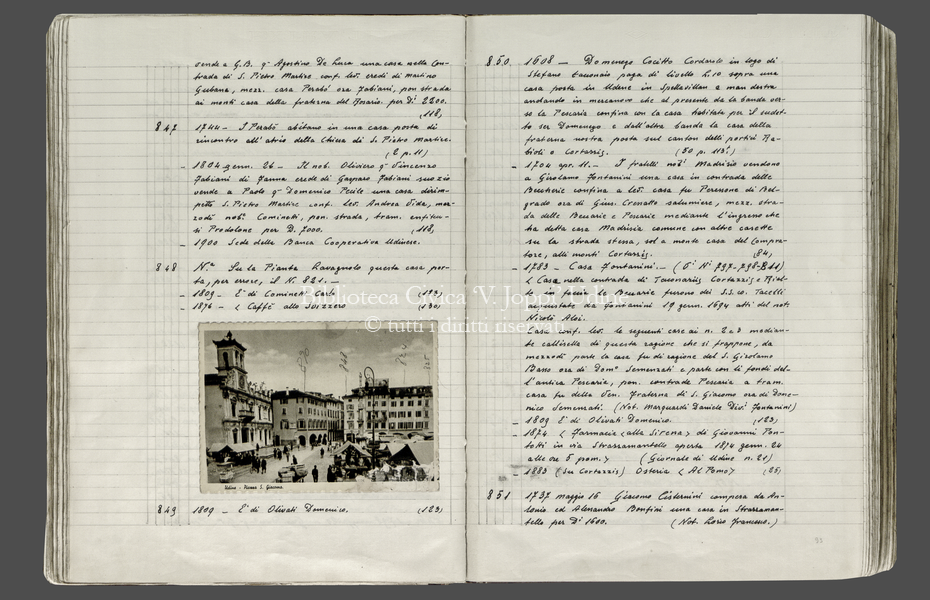 vende a G.B. q.m Agostino De Luca una casa nella Con-
trada di S. Pietro Martire conf. lev. eredi di Martino
mezz. casa Perabò ora Fabiani, pon. strada
ai monti casa della fraterna del Rosario. per D.i 2200.
(118)
847 1744 – I Perabò abitano in una casa posta di
rincontro all'atrio della Chiesa di S. Pietro Martire.
(2 p. 11)
– 1804 genn. 26 – Il nob. Oliviero q.m Vincenzo
Fabiani di Fanna erede di Gasparo Fabiani suo zio
vende a Paolo q.m Domenico Pecile una casa dirim-
petto S. Pietro Martire conf. lev. Andrea Vida, mez-
zodì nob.i Cominetti, pon. strada, tram. enfiteu-
si Prodolone per D. 7000. (118)
– 1900 Sede della Banca Cooperativa Udinese.
848 N.a Su la Pianta Lavagnolo questa casa por-
ta, per errore, il N. 821.
– 1809 – E' di Cominetti Carlo (123)
– 1876 – Caffè allo Svizzero (130)
848
825
Udine - Piazza S. Giacomo
849 1809 – E' di Olivati Domenico. (123)
850 1608 – Domenego Cocitto Cordarolo in logo di
Stefano paga di livello L. 10 sopra una
casa posta in Udine in Spelladillan a man destra
andando in mercanovo che al presente da la banda ver-
so la Pescaria confina con la casa habitata per il sudet-
to ser Domenego e dall'altra banda la casa della
fraterna nostra posta sul canton delli portici Ra-
bioli o Cortazzis. (50, p. 113)
– 1704 apr. 11 – I fratelli nob.i Madrisio vendono
a Girolamo Fontanini una casa in contrada delle
Beccherie confina a lev. casa fu Perenone di Bel-
grado ora di Gius. Cronatto salumiere, mezz. stra-
da delle Beccarie e Pescarie mediante l'ingresso che
ha detta casa Madrisia comune con altre casette
su la strada stessa, sol a monte casa del compra-
tore, alli monti Cortazzis. (84)
– 1783 – Casa Fontanini. – (6 N.i 797-798-811)
Casa nella contrada di Cortazzis e Rial-
to in faccia le Beccarie furono dei S.S.co. Tacelli
acquistate da Fontanini 19 genn. 1694 atti del not.
Nicolò Aloi.
Casa conf. lev. le seguenti case ai n. 2 e 3 median-
te calliselle di questa ragione che si frappone, da
mezzodì parte la casa fu di ragione del S. Girolamo
Basso ora di Dom.o Semenzati e parte con li fondi del-
l'antica Pescaria, pon. contrade Pescaria a tram.
casa fu della Ven. Fraterna di S. Giacomo ora di Dome-
nico Semenzati. (Not. Marquardi Daniele Divi. Fontanini)
– 1809 E' di Olivati Domenico. (123)
– 1874 < Farmacia < alla Sirena > di Giovanni Pon-
totti in via Strazzamantello aperta 1874 genn. 24
alle ore 5 pom. > (Giornale di Udine n. 21)
– 1883 (Su Cortazzis) Osteria < Al Pomo > (25)
851 1737 maggio 16 Giacomo Cisternini compera da An-
tonio ed Alessandro Bonfini una casa in Strazzaman-
tello per D.i 1600. (Not. Lorio Francesco.)
93
Biblioteca Civica V. Joppi, Udine
© tutti i diritti riservati